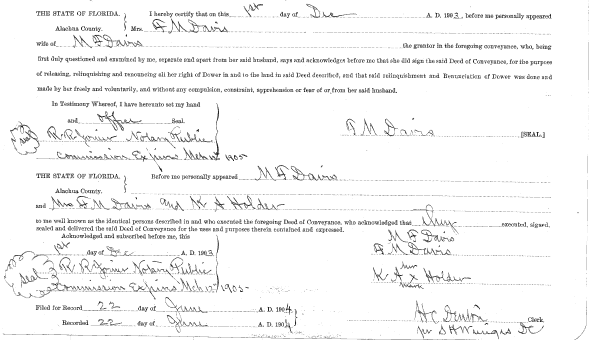 THE STATE OF FLORIDA. } I hereby certify that on this 1st day of Dec A. D. 1903, before me personally appeared
Alachua County. Mrs. F M Davis
wife of M F Davis the grantor in the foregoing conveyance, who, being
first duly questioned and examined by me, separate and apart from her said husband, says and acknowledges before me that she did sign the said Deed of Conveyance, for the purpose
of releasing, relinquishing and renouncing all her right of Dower in and to the land in said Deed described, and that said relinquishment and Renunciation of Dower was done and
made by her freely and voluntarily, and without any compulsion, constraint, apprehension or fear of or from her said husband.
In Testimony Whereof, I have hereunto set my hand
and office Seal.
seal R. R. Notary Public F M Davis [SEAL.]
Commission Expires Mch 12th 1905
THE STATE OF FLORIDA. } Before me personally appeared M F Davis
Alachua County.
and Mrs F M Davis and K A Holder
to me well known as the identical persons described in and who executed the foregoing Deed of Conveyance, who acknowledged that they executed, signed,
sealed and delivered the said Deed of Conveyance for the uses and purposes therein contained and expressed.
Acknowledged and subscribed before me, this
1st day of Dec A. D. 1903
M F Davis
F M Davis
seal R R Notary Public
Commission Expires Mch 12th 1905
her
K. A x Holder
mark
Filed for Record 22 day of June A. D. 1904
Recorded 22 day of June A. D. 1904
H C Denton Clerk.
per S H Wienges DC